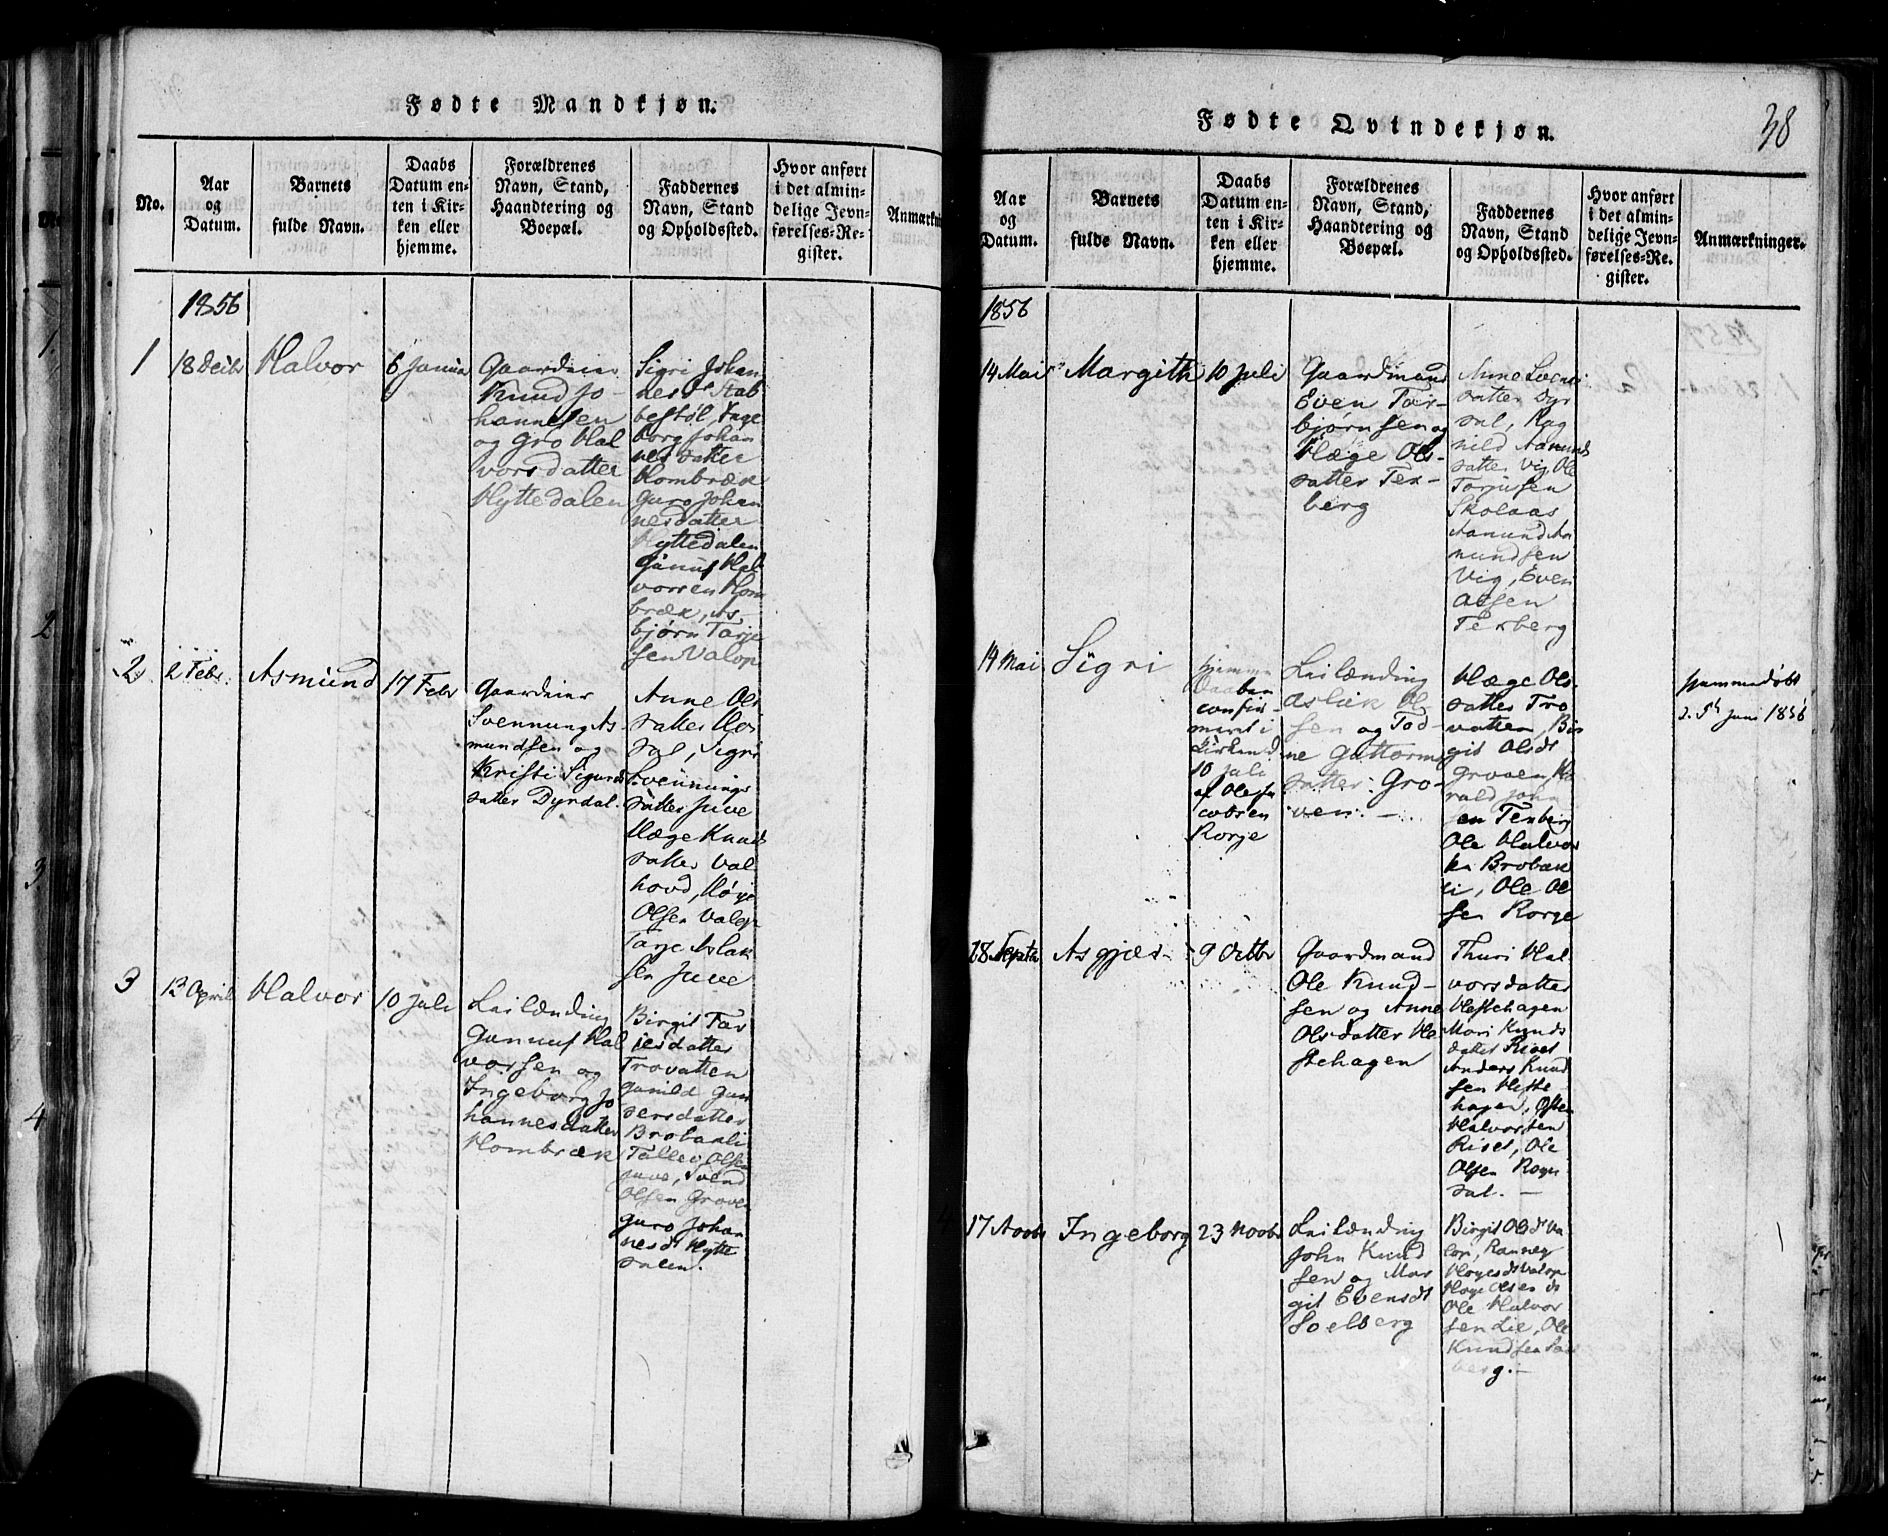 Fødte Mandkjøn.
No.
Aar
og
Datum.
Barnets
fulde Navn.
Daabs
Datum en-
ten i Kir-
ken eller
hjemme.
Forældrenes
Navn, Stand,
Haandtering og
Boepæl.
Faddernes
Navn, Stand
og Opholdssted.
Hvor anført
i det almin-
delige Jevn-
førelses-Re-
gister.
Anmærkning
1856
1
18 Decbr
Halvor
6 Januar
Gaardeier
Knud Jo-
hannesen
og Gro Hal
vorsdatter
Hyttedalen
Sigri Johan
nesdt Stab
bestøl, Inge
borg Johan
nesdatter
Hombræk
Guro Johan
nesdatter
Hyttedalen
Gunuf Hal
vorsen Hom
bræk, As
bjørn Tarje
sen Valop
2
2 Febr.
Asmund
17 Febr
Gaardeier
Svennung As
mundsen og
Kristi Sigurds
datter Dyrdal.
Anne Ols
datter
dal, Sigri
Svennungs
datter Juve
Hæge Knuds
datter Val
hovd, Høye
Olsen Valop
Tarje Aslak
sen Juve
3
13 April
Halvor
10 Juli
Leilænding
Gunnuf Hal
vorsen og
Ingeborg Jo
hannesdatter
Hombræk
Birgit Tar
jesdatter
Trovatten
Gunild Gun
Brobakli
Tallev Olsen
Juve, Svend
Olsen Groven
Guro Johan
nesdt Hytte
dalen.
Fødte Qvindekjøn.
38
Aar
og
Datum.
Barnets
fulde Navn.
Daabs
Datum en-
ten i Kir-
ken eller
hjemme.
Forældrenes
Navn, Stand,
Haandtering og
Boepæl.
Faddernes
Navn, Stand
og Opholdssted.
Hvor anført
i det almin-
delige Jevn-
førelses-Re-
gister.
Anmærkninger.
1856
14 Mai
Margith
10 Juli
Gaardmand
Even Tor-
bjørnsen og
Hæge Ols-
datter Tex-
berg
Anne Svens
datter Dyr
dal, Rag
nild Aamunds
datter Vig, Ole
Torjusen
Skolaas
Aamund Aa
mundsen
Vig, Even
Olsen
Texberg
19 Mai
Sigri
Hjemme
Daaben
confir-
meret i
Kirken d
10 Juli
af Ole Ja
cobsen
Rorje
Leilænding
Aslak Ol-
sen og Tod-
ne Guttorms
datter Gro-
ven. -
Hæge Ols-
datter Tro
vatten, Bir
git Olsdt
Groven, Ha
rald John
sen Texberg
Ole Halvor
Brobak
li, Ole Ol
sen Rorge
hjemmedøbt
d. 5te Juni 1856
28 Septbr
Asgjær
9 Octbr
Gaardmand
Ole Knud-
sen og Anne
Olsdatter He
stehagen
Thuri Hal
vorsdatter
Hestehagen
Mari Knuds
datter Riset
Anders Knud
sen Heste
hagen, Osten
Halvorsen
Riset, Ole
Olsen Rogn
dal. -
17 Novbr
Ingeborg
23 Novbr
Leilænding
John Knud
sen og Mar
git Evensdt
Soelberg
Birgit Olsdt Va
lop, Ranneg
Høyesdt Valop
Høye Olsen dt
Ole Halvor
sen Lie, Ole
Knudsen Soel
berg. -